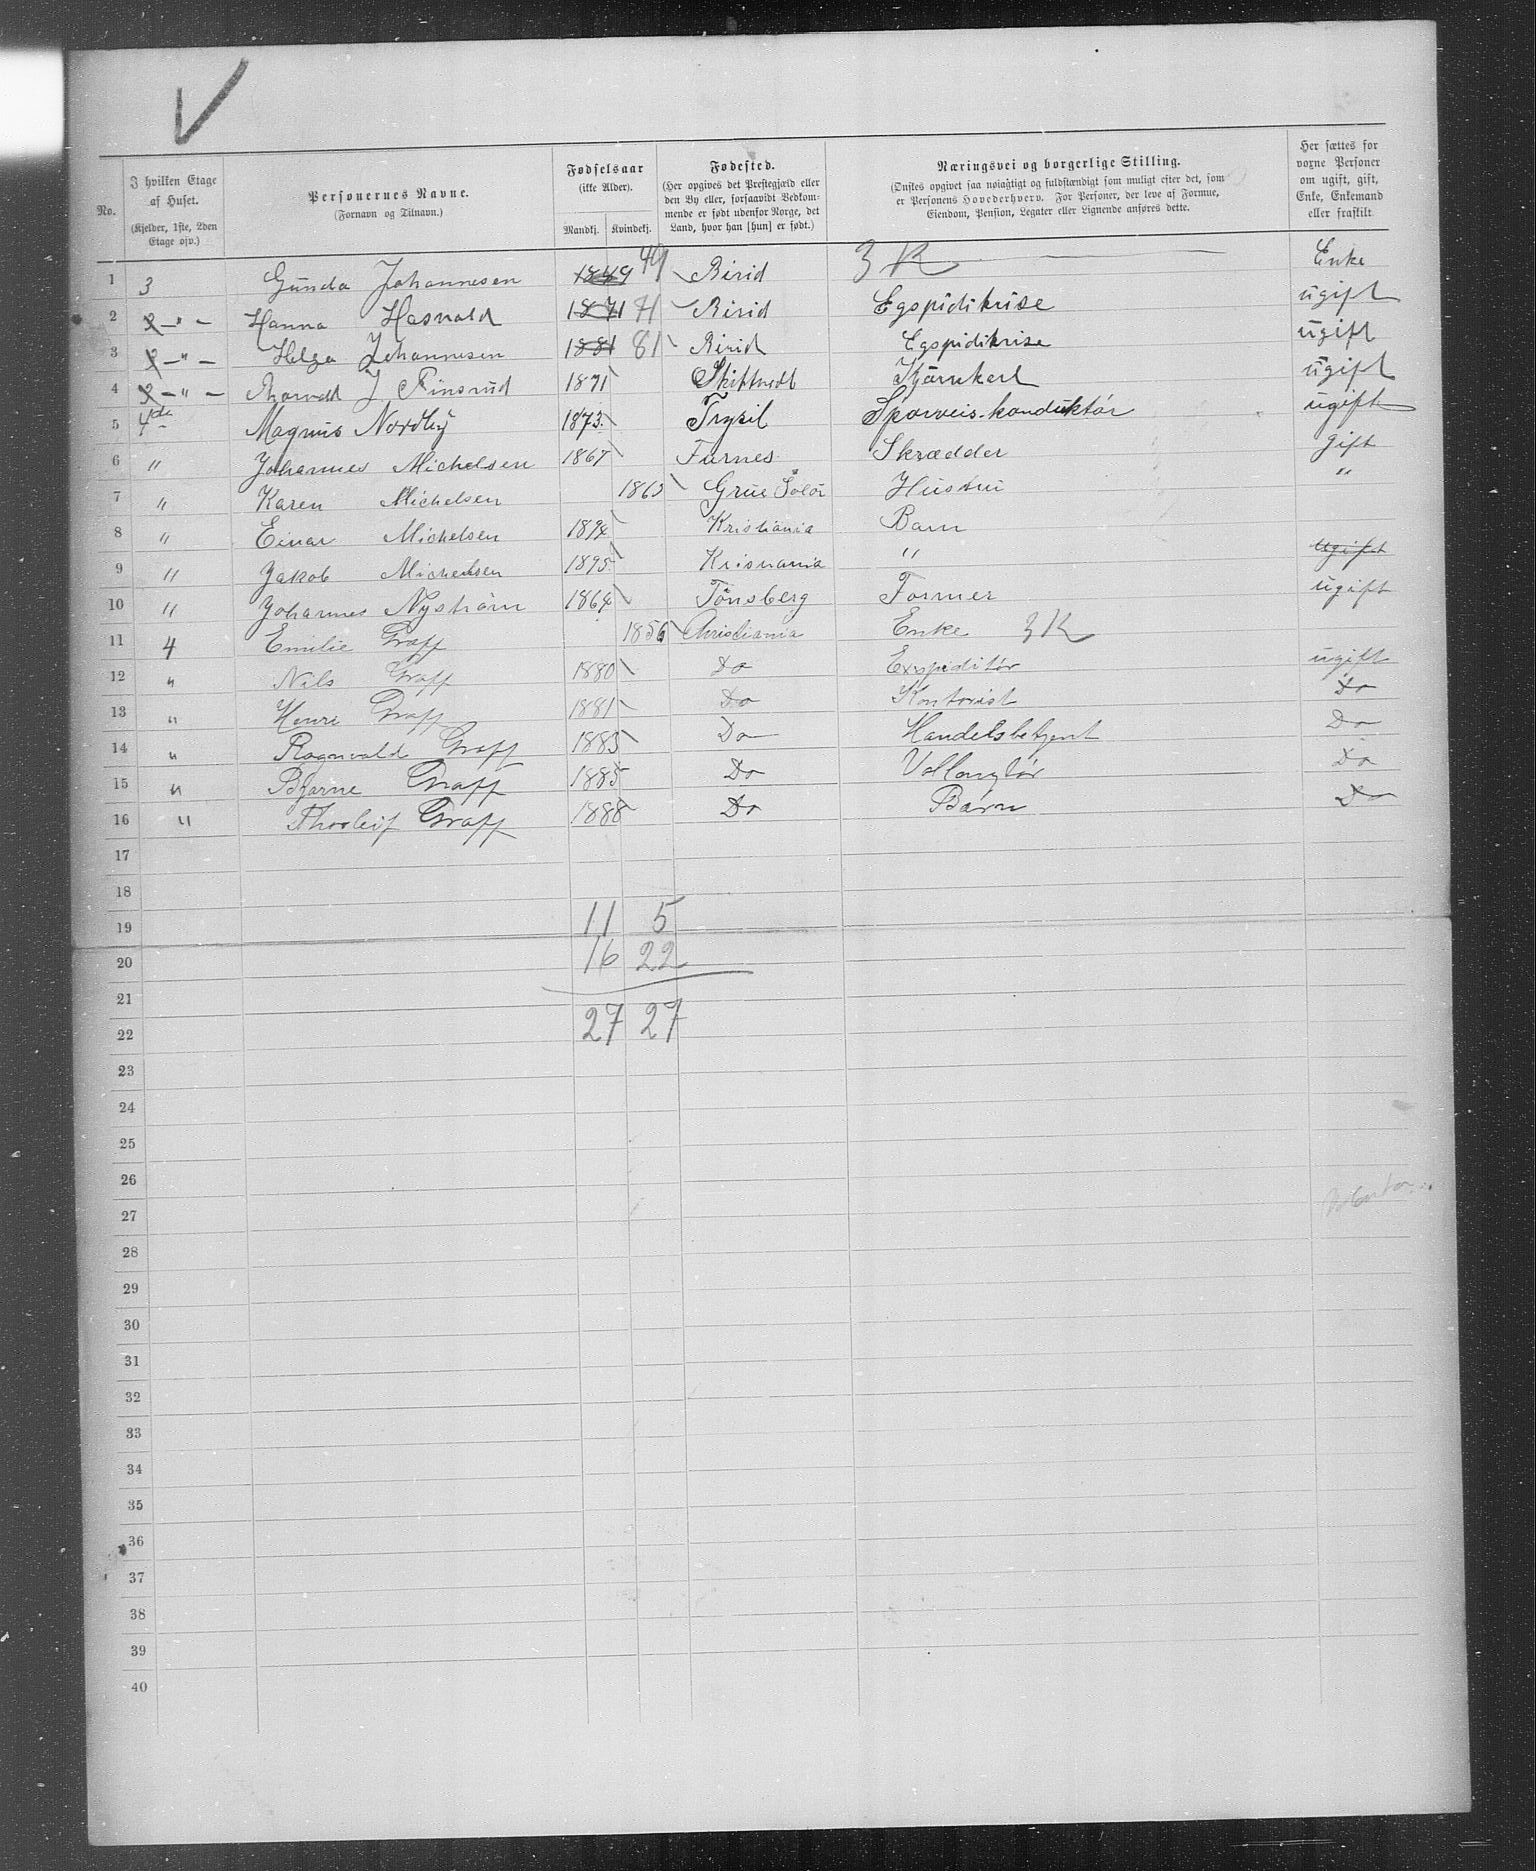 No. I hvilken Etage af Huset. (Kjelder, 1ste, 2den Etage osv.) Personernes Navne. (Fornavn og Tilnavn.) Fødselsaar (ikke Alder). Mandkj. Kvindekj. Fødested. (Her opgives det Prestegjæld eller den By eller, forsaavidt Vedkommende er født udenfor Norge, det Land, hvor han [hun] er født.) Næringsvei og borgerlige Stilling. (Ønskes opgivet saa nøiagtigt og fuldstændigt som muligt efter det, som er Personens Hovederhverv. For Personer, der leve af Formue, Eiendom, Pension, Legater eller Lignende anføres dette. Her sættes for voxne Personer om ugift, gift, Enke, Enkemand eller fraskilt.
1 3 Gunda Johannesen 1849 49 Birid 3 K Enke
2 -"- Hanna Hasvold 1871 71 Birid Egspidikrise ugift
3 -"- Helga Johannesen 1881 81 Birid Egspidikrise ugift
4 -"- Thorvald J Finsrud 1871 Skiftvedt Kjørekarl ugift
5 4de Magnus Nordby 1873 Trysil Sporveis-konduktør ugift
6 " Johannes Michelsen 1867 Furnes Skrædder gift
7 " Karen Michelsen 1863 Grue Soløi Hustru "
8 " Einar Michelsen 1894 Kristiania Barn
9 " Jakob Michelsen 1895 Kristiania " ugift
10 " Johannes Nystrøm 1864 Tønsberg Former ugift
11 4 Emilie Graff 1856 Christiania Enke 3K
12 " Nils Graff 1880 Do Exspeditør ugift
13 " Henri Graff 1881 Do Kontorist Do
14 " Ragnvald Graff 1883 Do Handelsbetjent Do
15 " Bjarne Graff 1885 Do Vollontør Do
16 " Thorleif Graff 1888 Do Barn Do
17
18
19 11 5
20 16 22
21
22 27 27
23
24
25
26
27
28
29
30
31
32
33
34
35
36
37
38
39
40